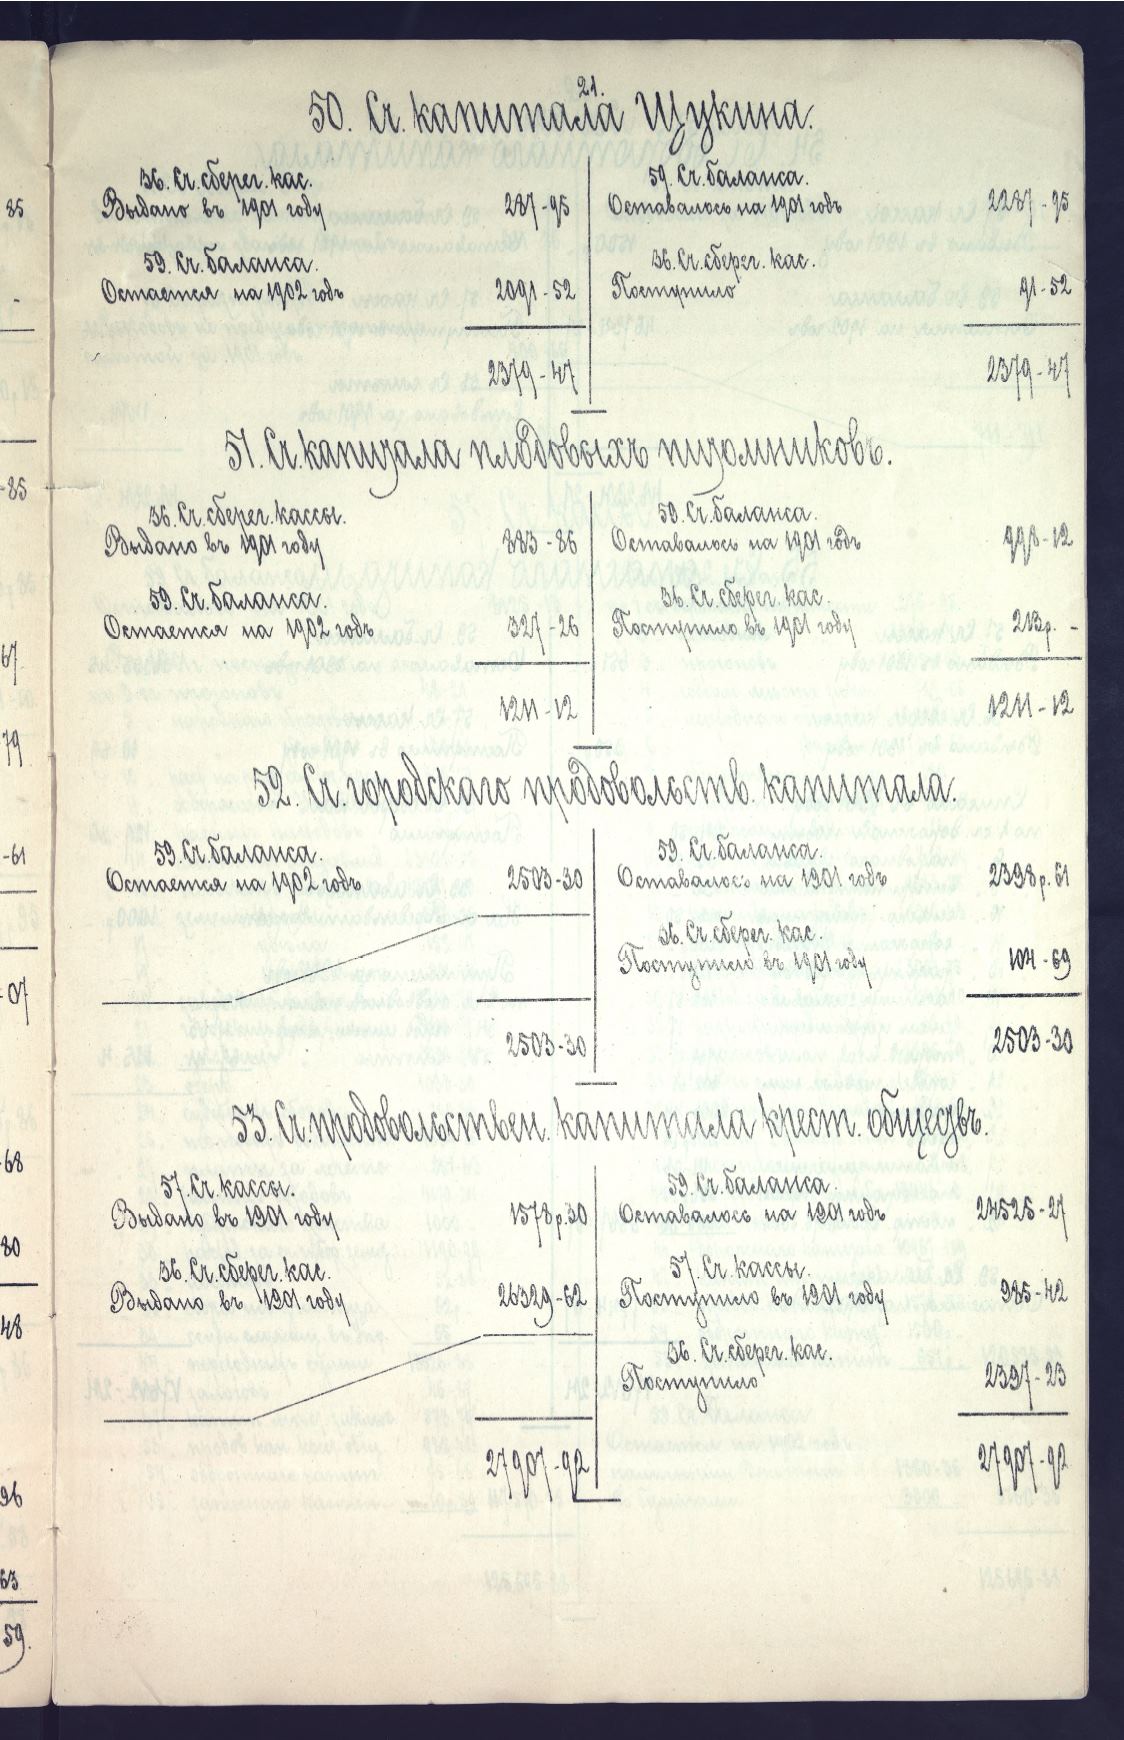 21.
50. Сч. капитала Щукина.
36. Сч. сберег. кас.
Выдано въ 1901 году 287-95
59. Сч. баланса.
Остается на 1902 годъ 2091-52
2379-47
59. Сч. баланса.
Оставалось на 1901 годъ 2287-95
36. Сч. сберег. кас.
Поступило 91-52
2379-47
51. Сч. капитала плодовыхъ питомниковъ.
36. Сч. сберег. кассы.
Выдано въ 1901 году 883-86
59. Сч. баланса.
Остается на 1902 годъ 327-26
1211-12
59. Сч. баланса.
Оставалось на 1901 годъ 998-12
36. Сч. сберег. кас.
Поступило въ 1901 году 213р. -
1211-12
52. Сч. городскаго продовольств. капитала.
59. Сч. баланса.
Остается на 1902 годъ 2503-30
2503-30
59. Сч. баланса.
Оставалось на 1901 годъ 2398р.61
36. Сч. сберег. кас.
Поступило въ 1901 году 104-69
2503-30
53. Сч. продовольствен. капитала крест. общедвъ.
57. Сч. кассы.
Выдано въ 1901 году 1578р.30
36. Сч. сберег. кас.
Выдано въ 1901 году 26329-62
27907-92
59. Сч. баланса.
Оставалось на 1901 годъ 24525-27
57. Сч. кассы.
Поступило въ 1901 году 985-42
36. Сч. сберег. кас.
Поступило 2397-23
27907-92
85
-
-85
67
79
-61
-07
-68
80
48
96
63
59.